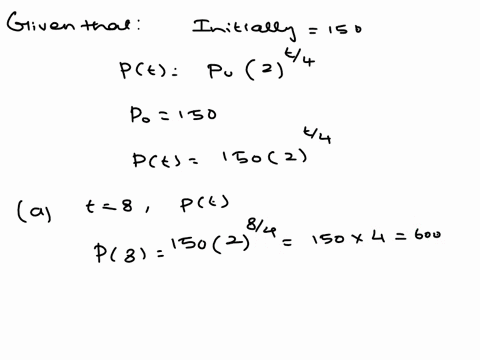 Given that: Initially = 150
P(t): P₀(2)^{t/4}
P₀ = 150
P(t) = 150(2)^{t/4}
(a) t = 8, P(t)
P(8) = 150(2)^{8/4} = 150 × 4 = 600